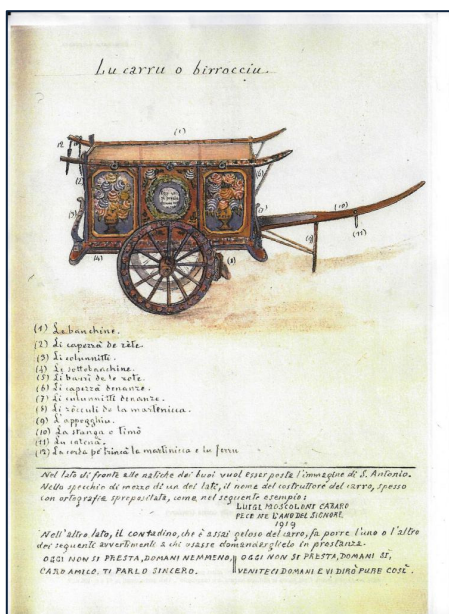 Lu carru o birrocciu.
(1)
12
(2)
(6)
(3)
(7)
(10)
(11)
(9)
(4)
(8)
(1) Le banchine.
(2) Li caperzà de rète.
(3) Li colunnitti.
(4) Le sottobanchine.
(5) Li barri de le rote.
(6) Li caperzà denanze.
(7) Li colunnitti denanze.
(8) Li zócculi de la martenicca.
(9) L'appogghiu.
(10) La stanga o timó
(11) La catena.
(12) La corda pe' trincà la martinicca e lu ferru
Nel lato di fronte alle natiche dei buoi vuol esser posta l'immagine di S. Antonio.
Nello specchio di mezzo di un dei lati, il nome del costruttore del carro, spesso
con ortografia spropositata, come nel seguente esempio:
LUIGI MOSCOLONI CARARO
FECE NE L'ANO DEL SIGNORE.
1919
Nell'altro lato, il contadino, che è assai geloso del carro, fa porre l'uno o l'altro
dei seguenti avvertimenti a chi osasse domandarglielo in prestanza.
OGGI NON SI PRESTA, DOMANI NEMMENO, OGGI NON SI PRESTA, DOMANI SÌ,
CARO AMICO, TI PARLO SINCERO. VENITECI DOMANI E VI DIRÒ PURE COSÌ.